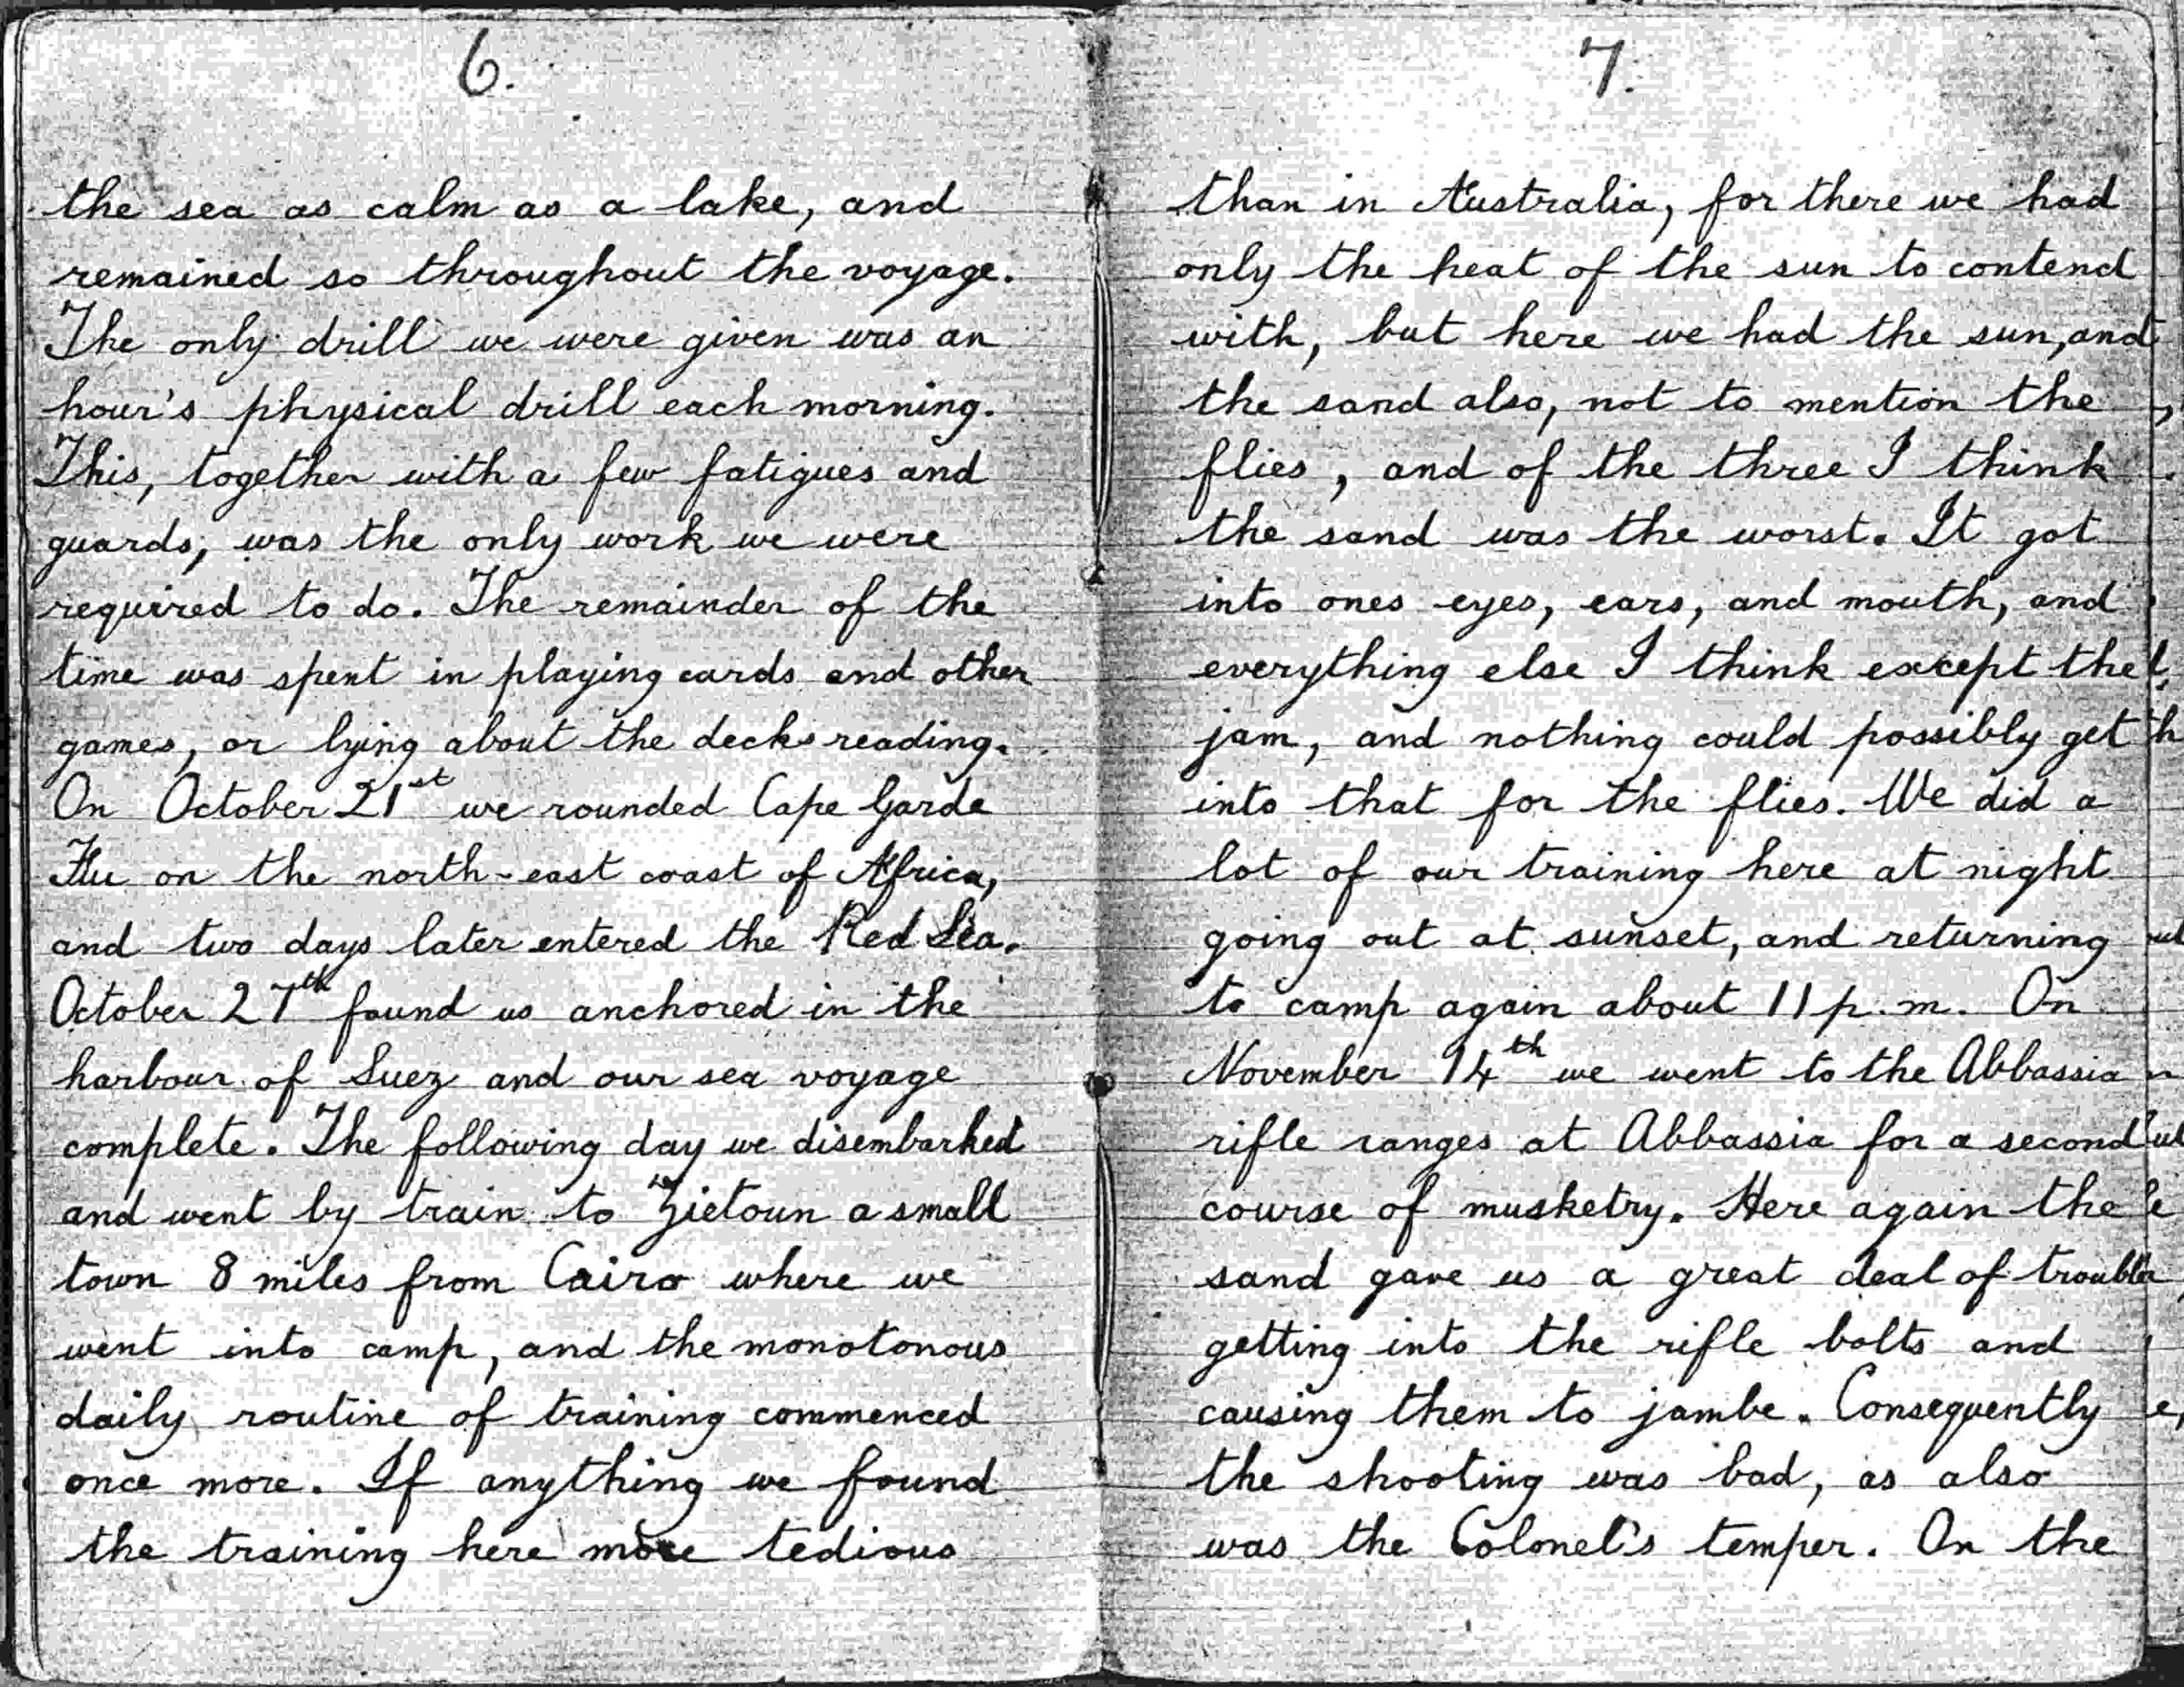 6.
the sea as calm as a lake, and
remained so throughout the voyage.
The only drill we were given was an
hour's physical drill each morning.
This, together with a few fatigues and
guards, was the only work we were
required to do. The remainder of the
time was spent in playing cards and other
games, or lying about the decks reading.
On October 21st we rounded Cape Garde
Flu on the north-east coast of Africa,
and two days later entered the Red Sea.
October 27th found us anchored in the
harbour of Suez and our sea voyage
complete. The following day we disembarked
and went by train to Zietoun a small
town 8 miles from Cairo where we
went into camp, and the monotonous
daily routine of training commenced
once more. If anything we found
the training here more tedious
7.
than in Australia, for there we had
only the heat of the sun to contend
with, but here we had the sun, and
the sand also, not to mention the
flies, and of the three I think
the sand was the worst. It got
into ones eyes, ears, and mouth, and
everything else I think except the
jam, and nothing could possibly get
into that for the flies. We did a
lot of our training here at night
going out at sunset, and returning
to camp again about 11 p.m. On
November 14th we went to the Abbassia
rifle ranges at Abbassia for a second
course of musketry. Here again the
sand gave us a great deal of trouble
getting into the rifle bolts and
causing them to jambe. Consequently
the shooting was bad, as also
was the Colonel's temper. On the